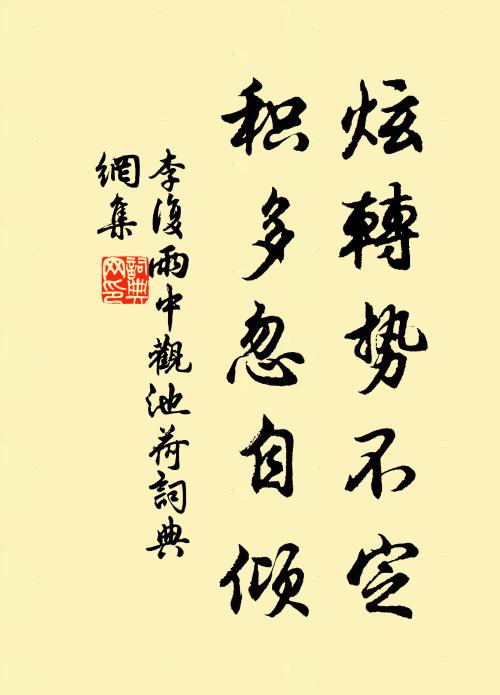 炫轉势不定
积多忽自倾
李復雨中觀池荷詞典
網集
詞典網印